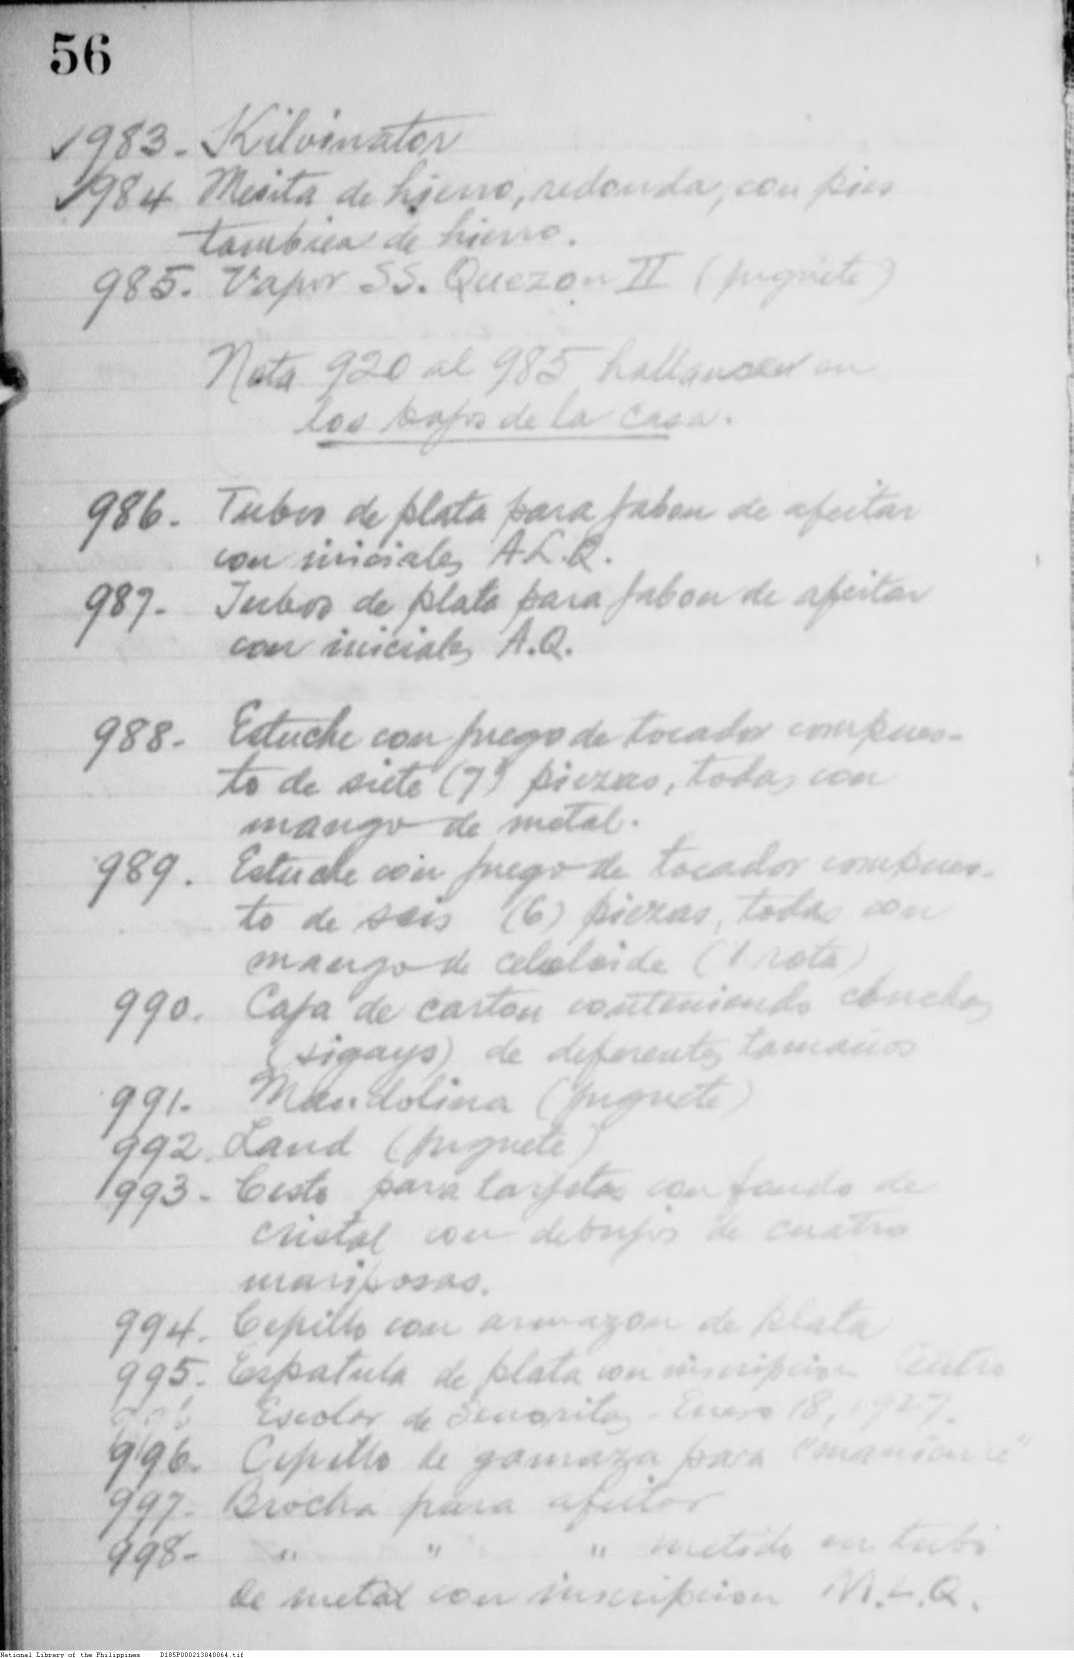 56
✓983- Kilvinator
✓984 Mesita de hierro, redonda, con pies
tambien de hierro.
985. Vapor SS. Quezon II (juguete)
Nota 920 al 985 hallanse en
los bajos de la casa.
986. Tubos de plata para jabon de afeitar
con iniciales A.L.Q.
987- Tubos de plata para jabon de afeitar
con iniciales A.Q.
988- Estuche con juego de tocador compues-
to de siete (7) piezas, todas con
mango de metal.
989. Estuche con juego de tocador compues-
to de seis (6) piezas, todas con
mango de celuloide (1 rota)
990. Caja de carton conteniendo conchas
(sigays) de diferentes tamaños
991- Mandolina (juguete)
992. Laud (juguete)
993- Cesto para tarjetas con fondo de
cristal con debujos de cuatro
mariposas.
994. Cepillo con armazon de plata
995- Espatula de plata con inscripcion Centro
Escolar de Señoritas - Enero 18, 1927.
996- Cepillo de gamuza para "manicure"
997- Brocha para afeitar
998- " " " metido en tubo
de metal con inscripcion M.L.Q.
National Library of the Philippines D185P000213040064.tif